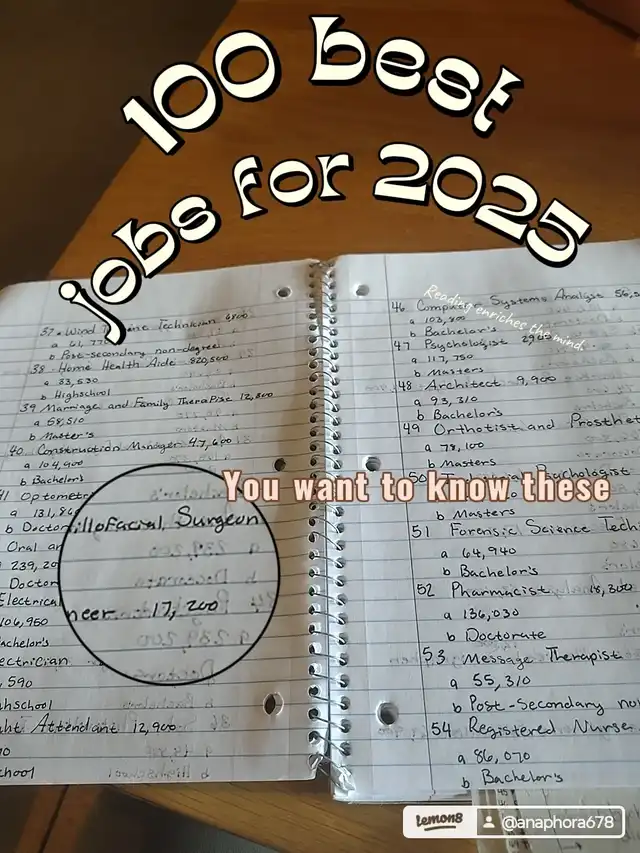 100 best
jobs for 2025
Reading enriches the mind.
You want to know these
37. Wind Technician 6800
a 61, 77
b Post-secondary non-degree
38 Home Health Aide 820,500
a 33,530
b Highschool
39 Marriage and Family Therapist 12,800
a 58,510
b Master's
40 Construction Manager 47,600
a 104,900
b Bachelors
41 Optometr
a 131,86
b Doctor
Oral ar
239,20
Doctor
Electrical
106,950
achelor's
ectrician
,590
ghschool
ht Attendant 12,900
chool
illofacial Surgeon
neer 17,200
46 Computer Systems Analyst 56,5
a 103,800
b Bachelor's
47 Psychologist
a 117,750
b Masters
48 Architect 9,900
a 93,310
b Bachelor's
49 Orthotist and Prosthet
a 78,100
b Masters
50 Psychologist
b Masters
51 Forensic Science Tech
a 64,940
b Bachelor's
52 Pharmacist 18,300
a 136,030
b Doctorate
53 Message Therapist
a 55,310
b Post-Secondary no
54 Registered Nurse
a 86,070
b Bachelor's
lemon8 @anaphora678